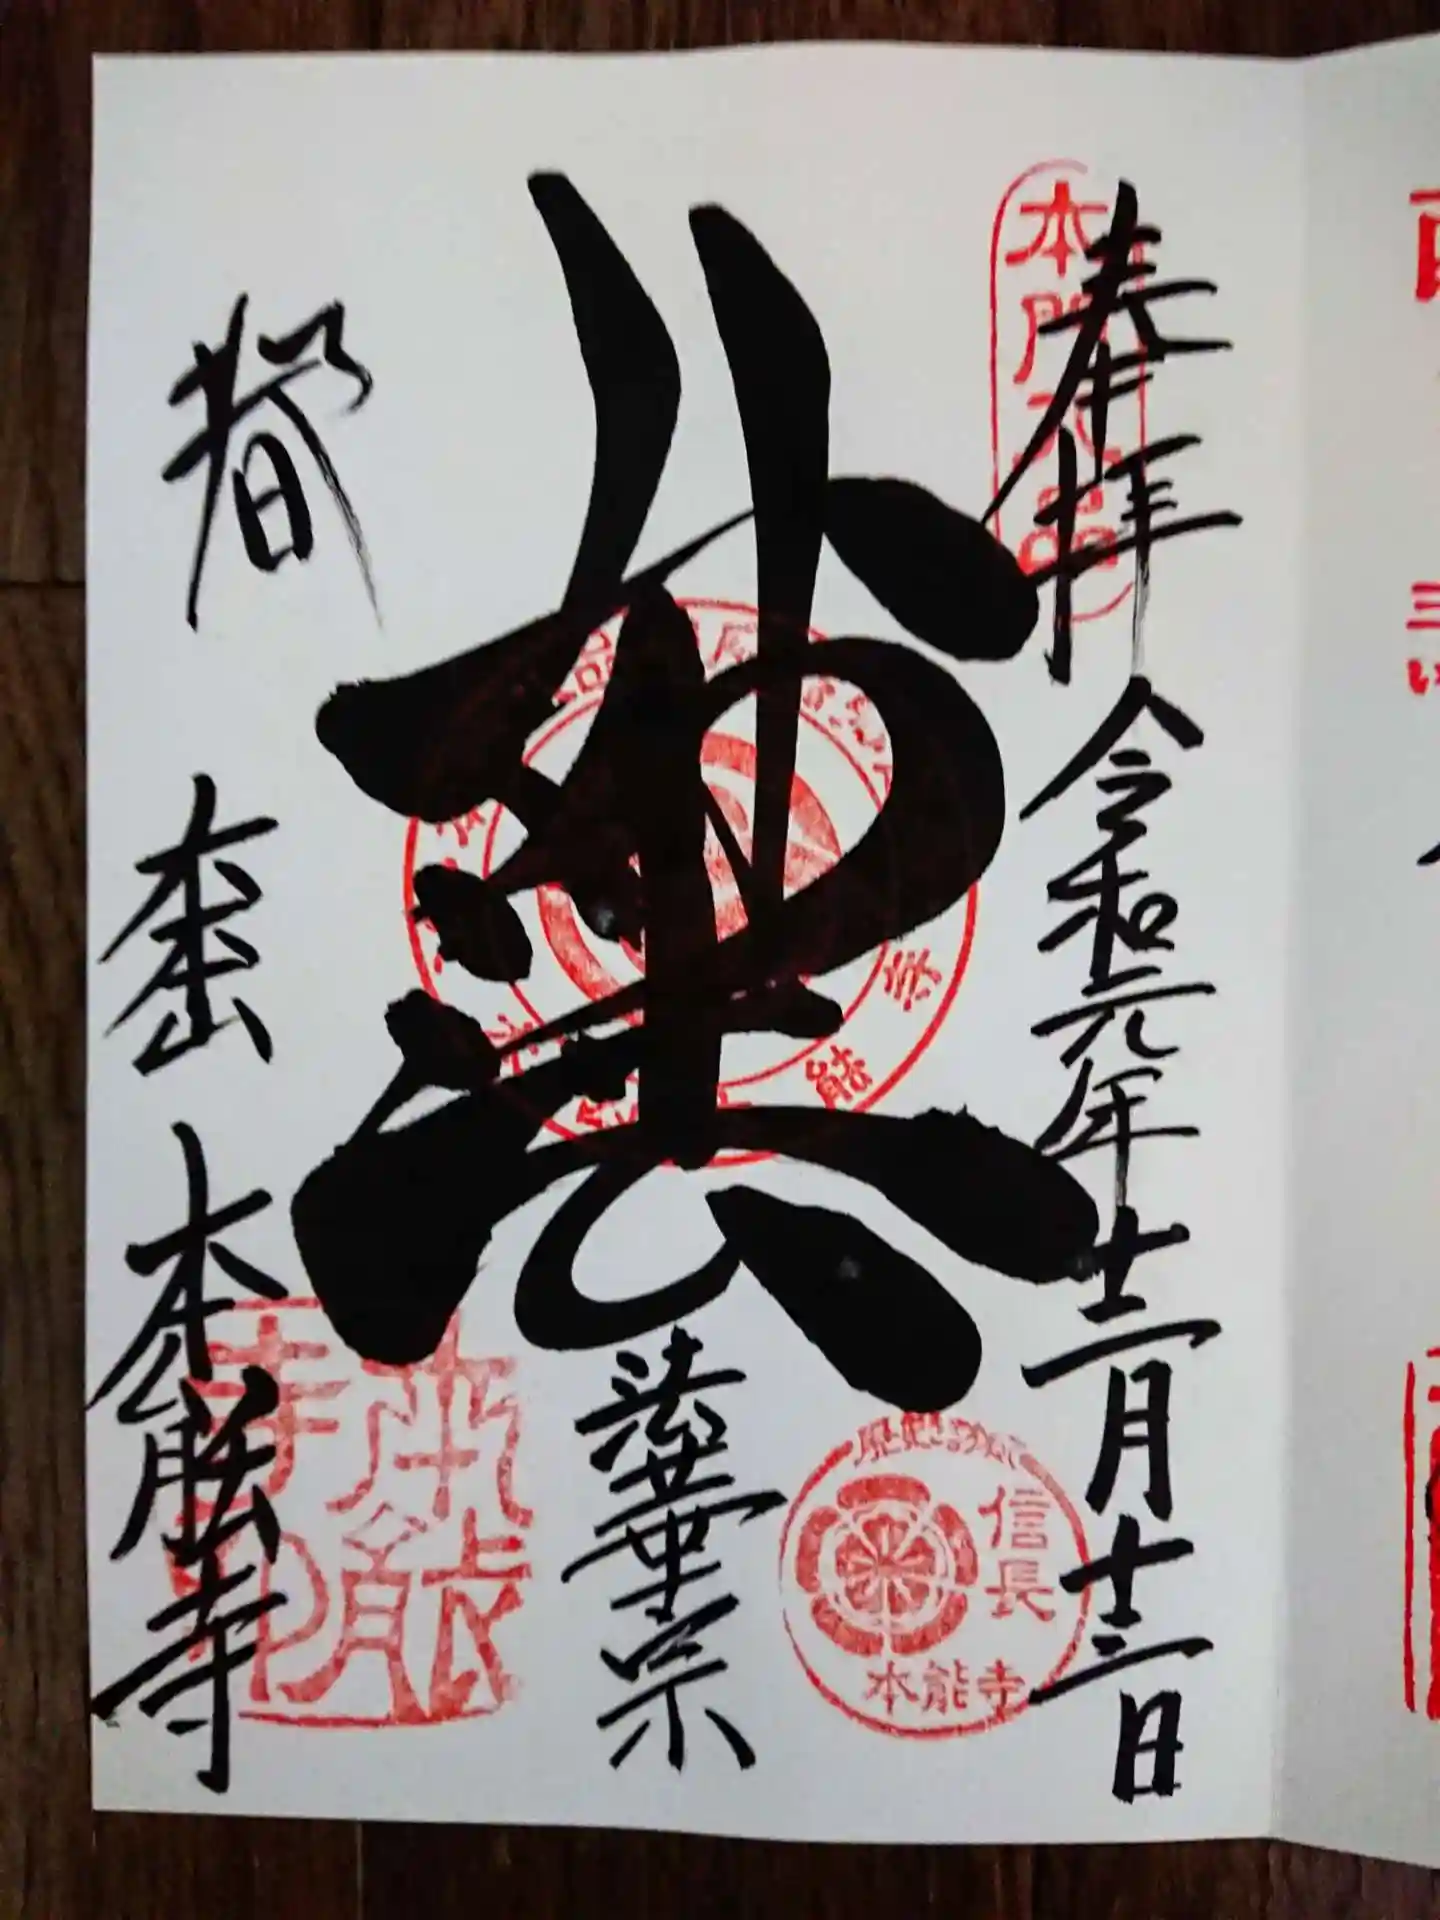 奉拝
令和元年十二月十三日
本門八品
妙法
法華宗
信長
本能寺
都
大本山
本能寺
本能寺